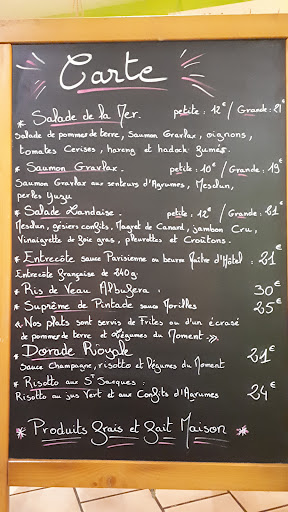 Carte
* Salade de la Mer. petite : 12€ / Grande : 21€
Salade de pommes de terre, Saumon Gravlax, oignons,
tomates Cerises, hareng et hadock fumés.
* Saumon Gravlax. petite : 10€ / Grande : 19€
Saumon Gravlax aux senteurs d'Agrumes, Mesclun,
perles Yuzu
* Salade Landaise. petite : 12€ / Grande : 21€
Mesclun, gésiers confits, Magret de Canard, jambon Cru,
Vinaigrette de foie gras, pleurottes et Croûtons.
* Entrecôte sauce Parisienne ou beurre Maître d'Hôtel : 21€
Entrecôte française de 240g.
* Ris de Veau Albufera. 30€
* Suprême de Pintade sauce Morilles 25€
« Nos plats sont servis de Frites ou d'un écrasé
de pommes de terre et Légumes du Moment ».
* Dorade Royale 21€
Sauce Champagne, risotto et légumes du Moment
* Risotto aux St Jacques :
Risotto au jus Vert et aux Confits d'Agrumes 24€
* Produits frais et fait Maison *